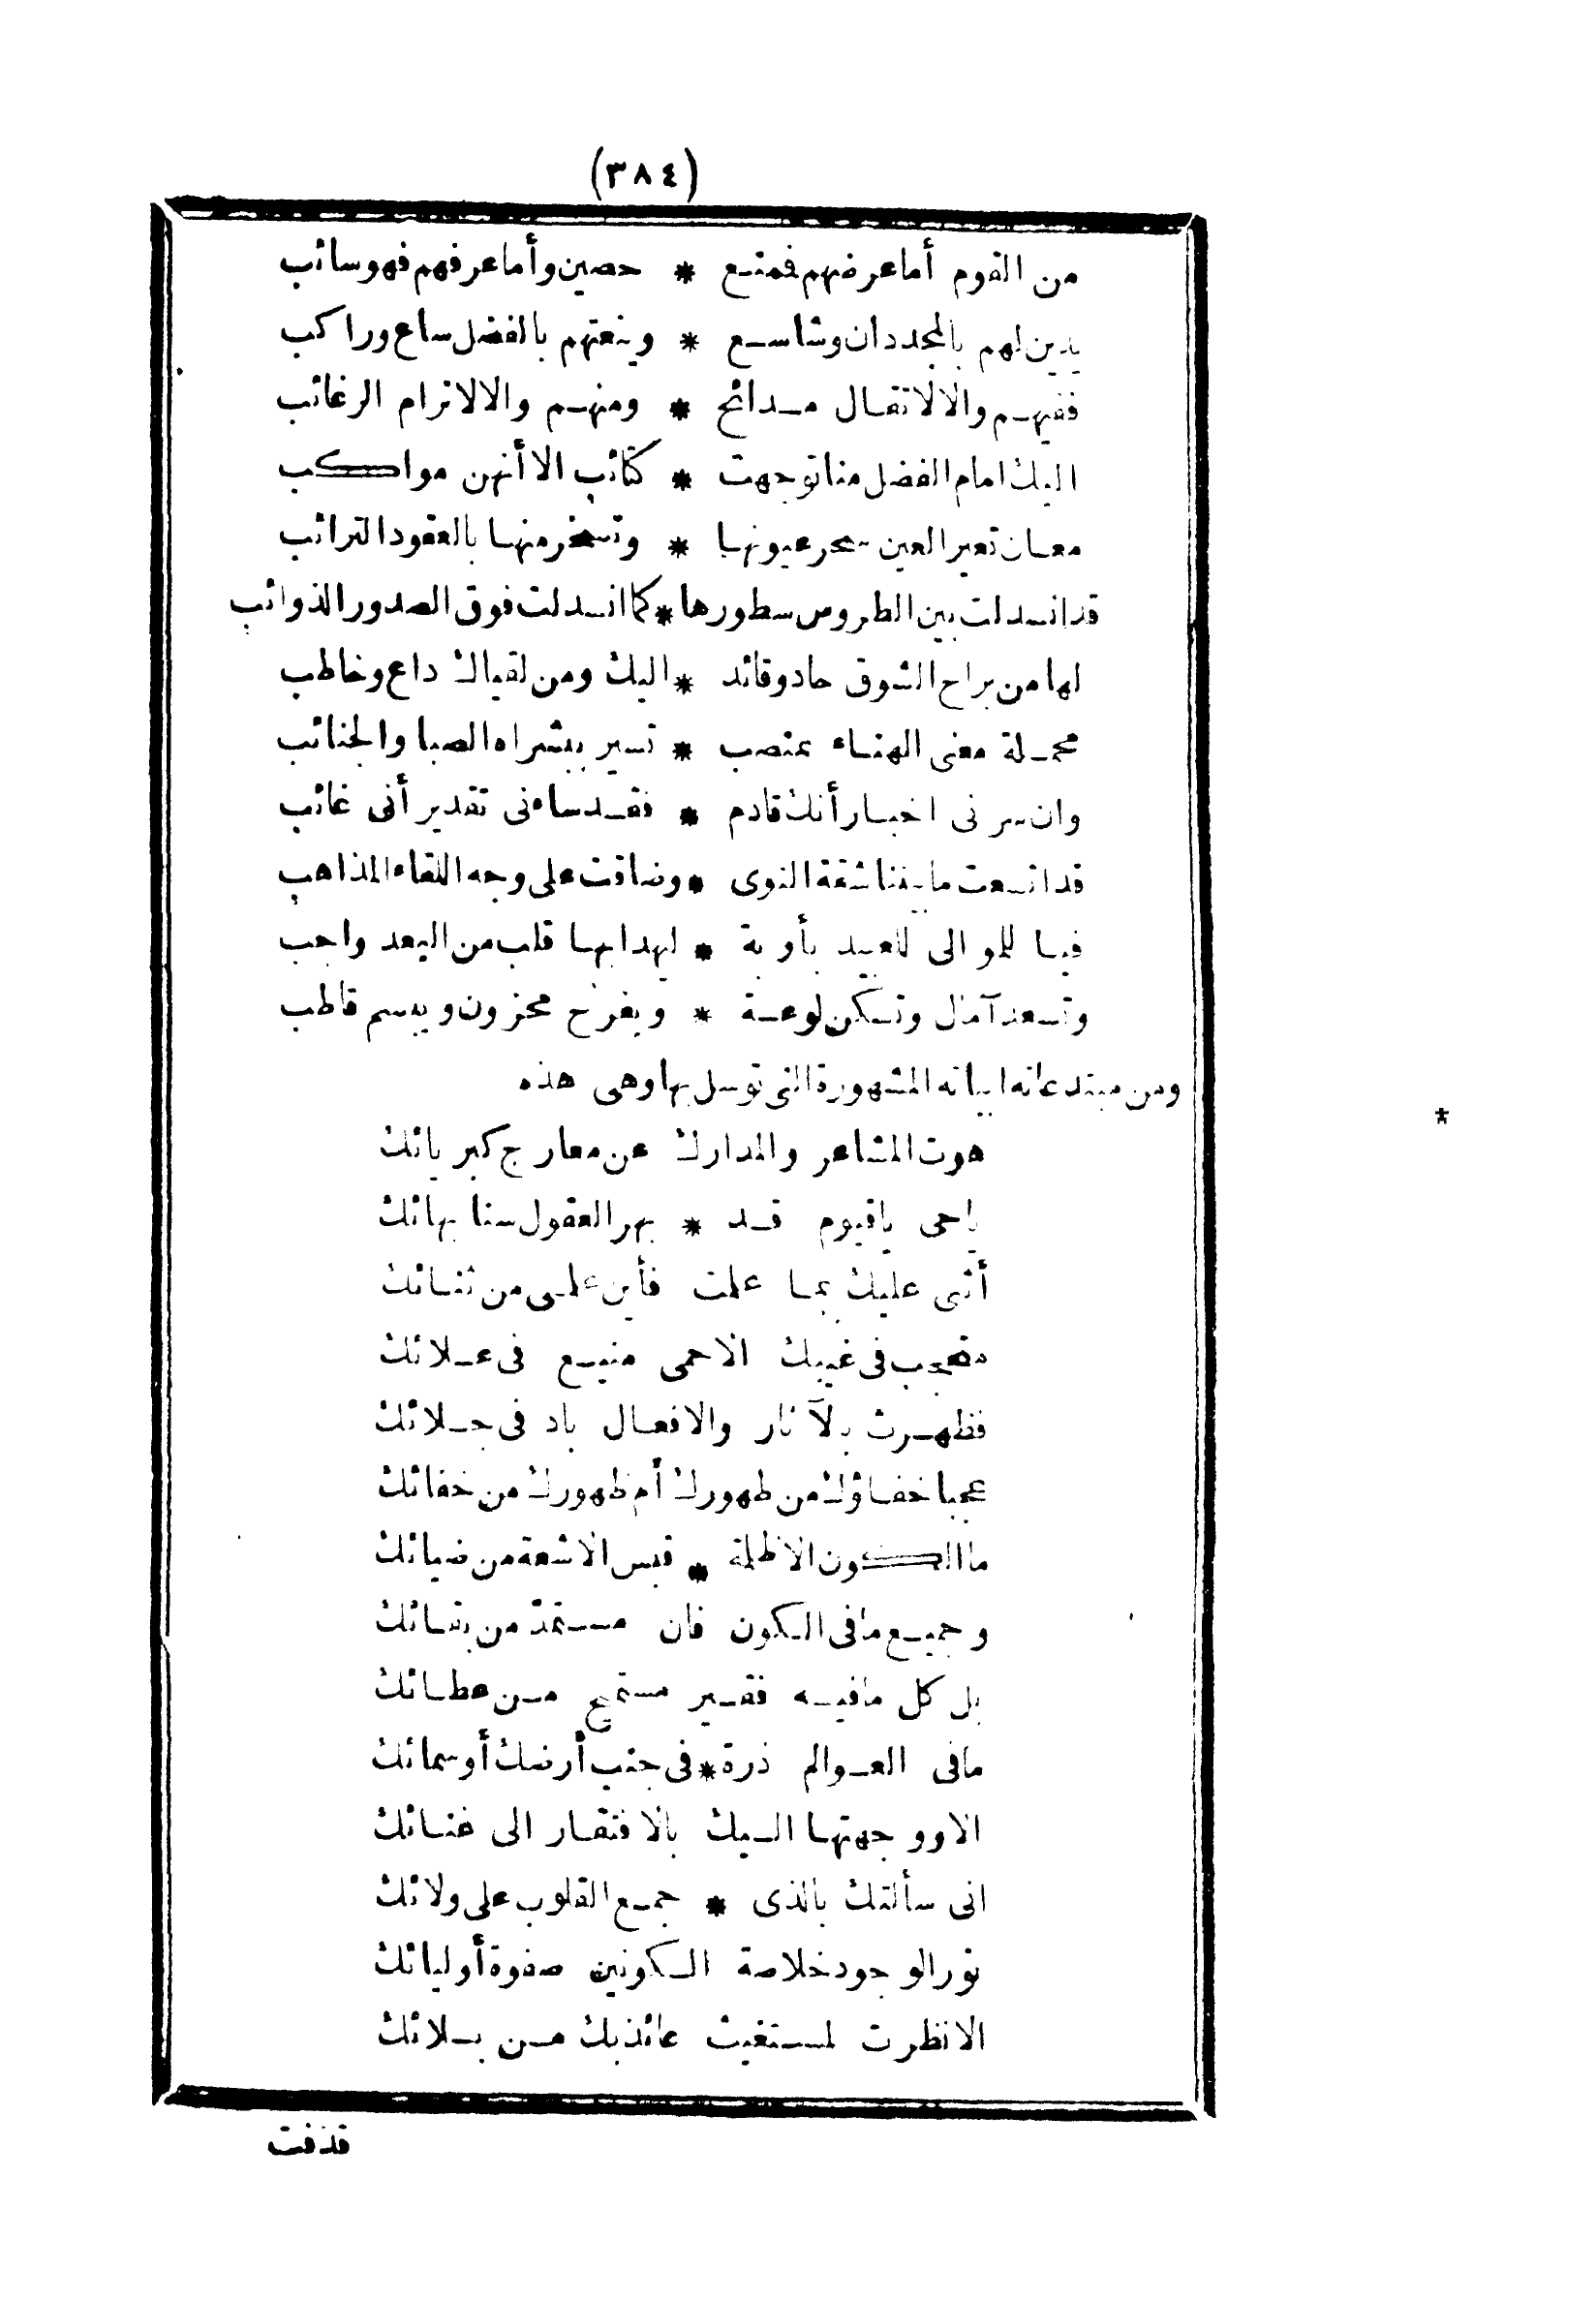 (٣٨٤)
من القوم أما عرضهم فممنع * حصين وأما عرفهم فهو سائب
يدين لهم بالمجد دان وشاسع * وينعتهم بالفضل ساع وراكب
ففيهم والا لا تقال مدائح * ومنهم والا لا ترام الرغائب
اليك امام الفضل منا توجهت * كتائب الا أنهن مواكب
معان تعير العين سحر عيونها * وتسخر منها بالعقود الترائب
قد انسدلت بين الطروس سطورها * كما انسدلت فوق الصدور الذوائب
لها من براح الشوق حاد وقائد * اليك ومن لقياك داع وخاطب
محملة معنى الهناء بمنصب * تسير ببشراه الصبا والجنائب
وان سرنى اخبار أنك قادم * فقد ساءنى تقدير أنى غائب
قد اتسعت ما بيننا شقة النوى * وضاقت على وجه اللقاء المذاهب
فيا للموالى للعبيد بأوبة * ليهدا بها قلب من البعد واجب
وتسعد آمال وتسكن لوعة * ويفرح محزون ويبسم قاطب
ومن مبتدعاته ابياته المشهورة التى توسل بها وهى هذه
هوت المشاعر والمدارك عن معارج كبريائك
ياحى ياقيوم قد * بهر العقول سنا بهائك
أثنى عليك بما علمت فأين علمى من ثنائك
متحجب فى غيبك الاحمى منيع فى علائك
فظهرت بالآثار والافعال باد فى جلائك
عجبا خفاؤك من ظهورك أم ظهورك من خفائك
ما الكون الا ظلمة * قبس الاشعة من ضيائك
وجميع ما فى الكون فان مستمد من بقائك
بل كل ما فيه فقير مستميح من عطائك
ما فى العوالم ذرة * فى جنب أرضك أو سمائك
الا ووجهتها اليك بالافتقار الى غنائك
انى سألتك بالذى * جمع القلوب على ولائك
نور الوجود خلاصة الكونين صفوة أوليائك
الا نظرت لمستغيث عائذ بك من بلائك
قذفت